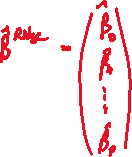 β̂^Ridge = ( β̂₀
β̂₁
⋮
β̂ₚ )